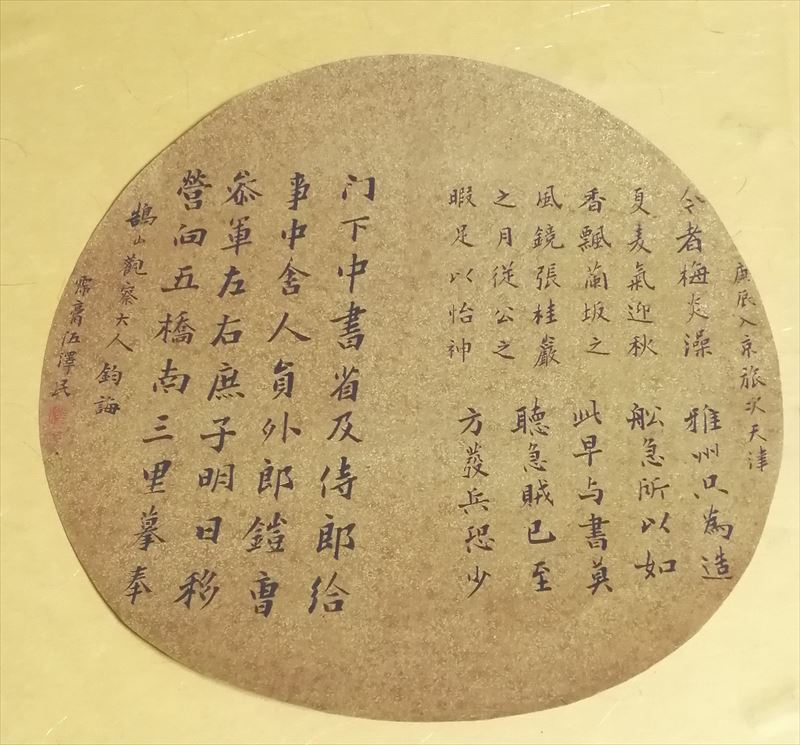 庚辰入京旅次天津
今者梅炎溽
夏麦氣迎秋
香飄蘭坂之
風鏡張桂巖
之月從公之
暇足以怡神
雅州只為造
舩急所以如
此早与書莫
聽急賊已至
方發兵恐少
门下中書省及侍郎給
事中舍人員外郎鎧曹
叅軍左右庶子明日移
營向五橋南三里摹奉
鵠山觀察大人 鈞誨
霈膏伍澤民